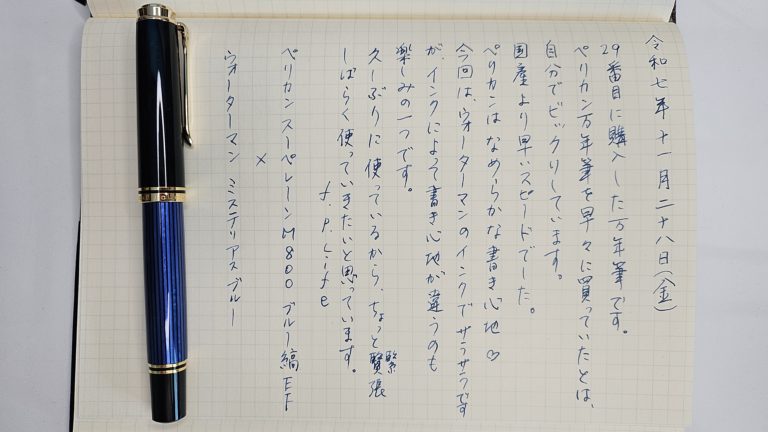 令和七年十一月二十八日(金)
29番目に購入した万年筆です。
ペリカン万年筆を早々に買っていたとは、
自分でビックリしています。
国産より早いスピードでした。
ペリカンはなめらかな書き心地♡
今回は、ウォーターマンのインクでサラサラです
が、インクによって書き心地が違うのも
楽しみの一つです。
久しぶりに使っているから、ちょっと緊張
しばらく使っていきたいと思っています。
f.p.Life
ペリカン スーペレーン M800 ブルー縞 EF
×
ウォーターマン ミステリアスブルー